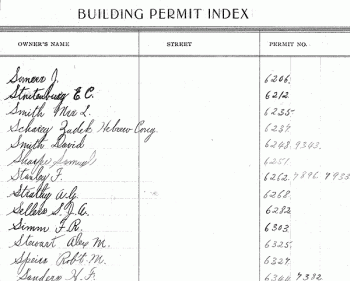 BUILDING PERMIT INDEX
OWNER'S NAME STREET PERMIT NO.
Simon J. 6206.
E.C. 6212.
Smith Mrs L. 6235.
Zadek Hebrew Cong. 6237.
Smyth David 6248. 9343.
Sharpe Samuel 6251.
Stanley F. 6262. 7896 7933
Strattly A.G. 6268.
Sellers S.J.A. 6282.
Simm F.R. 6303.
Stewart Alex M. 6325.
Speirs Robt. M. 6327.
Sanders H.F. 7382